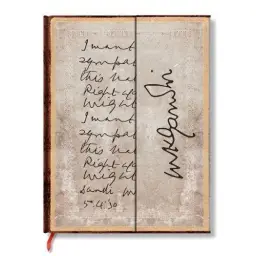 I want
sympat
this ba
Right ag
Might
I want
sympat
this ba
Right ag
Might
Dandi M
5.4.30
MKGandhi